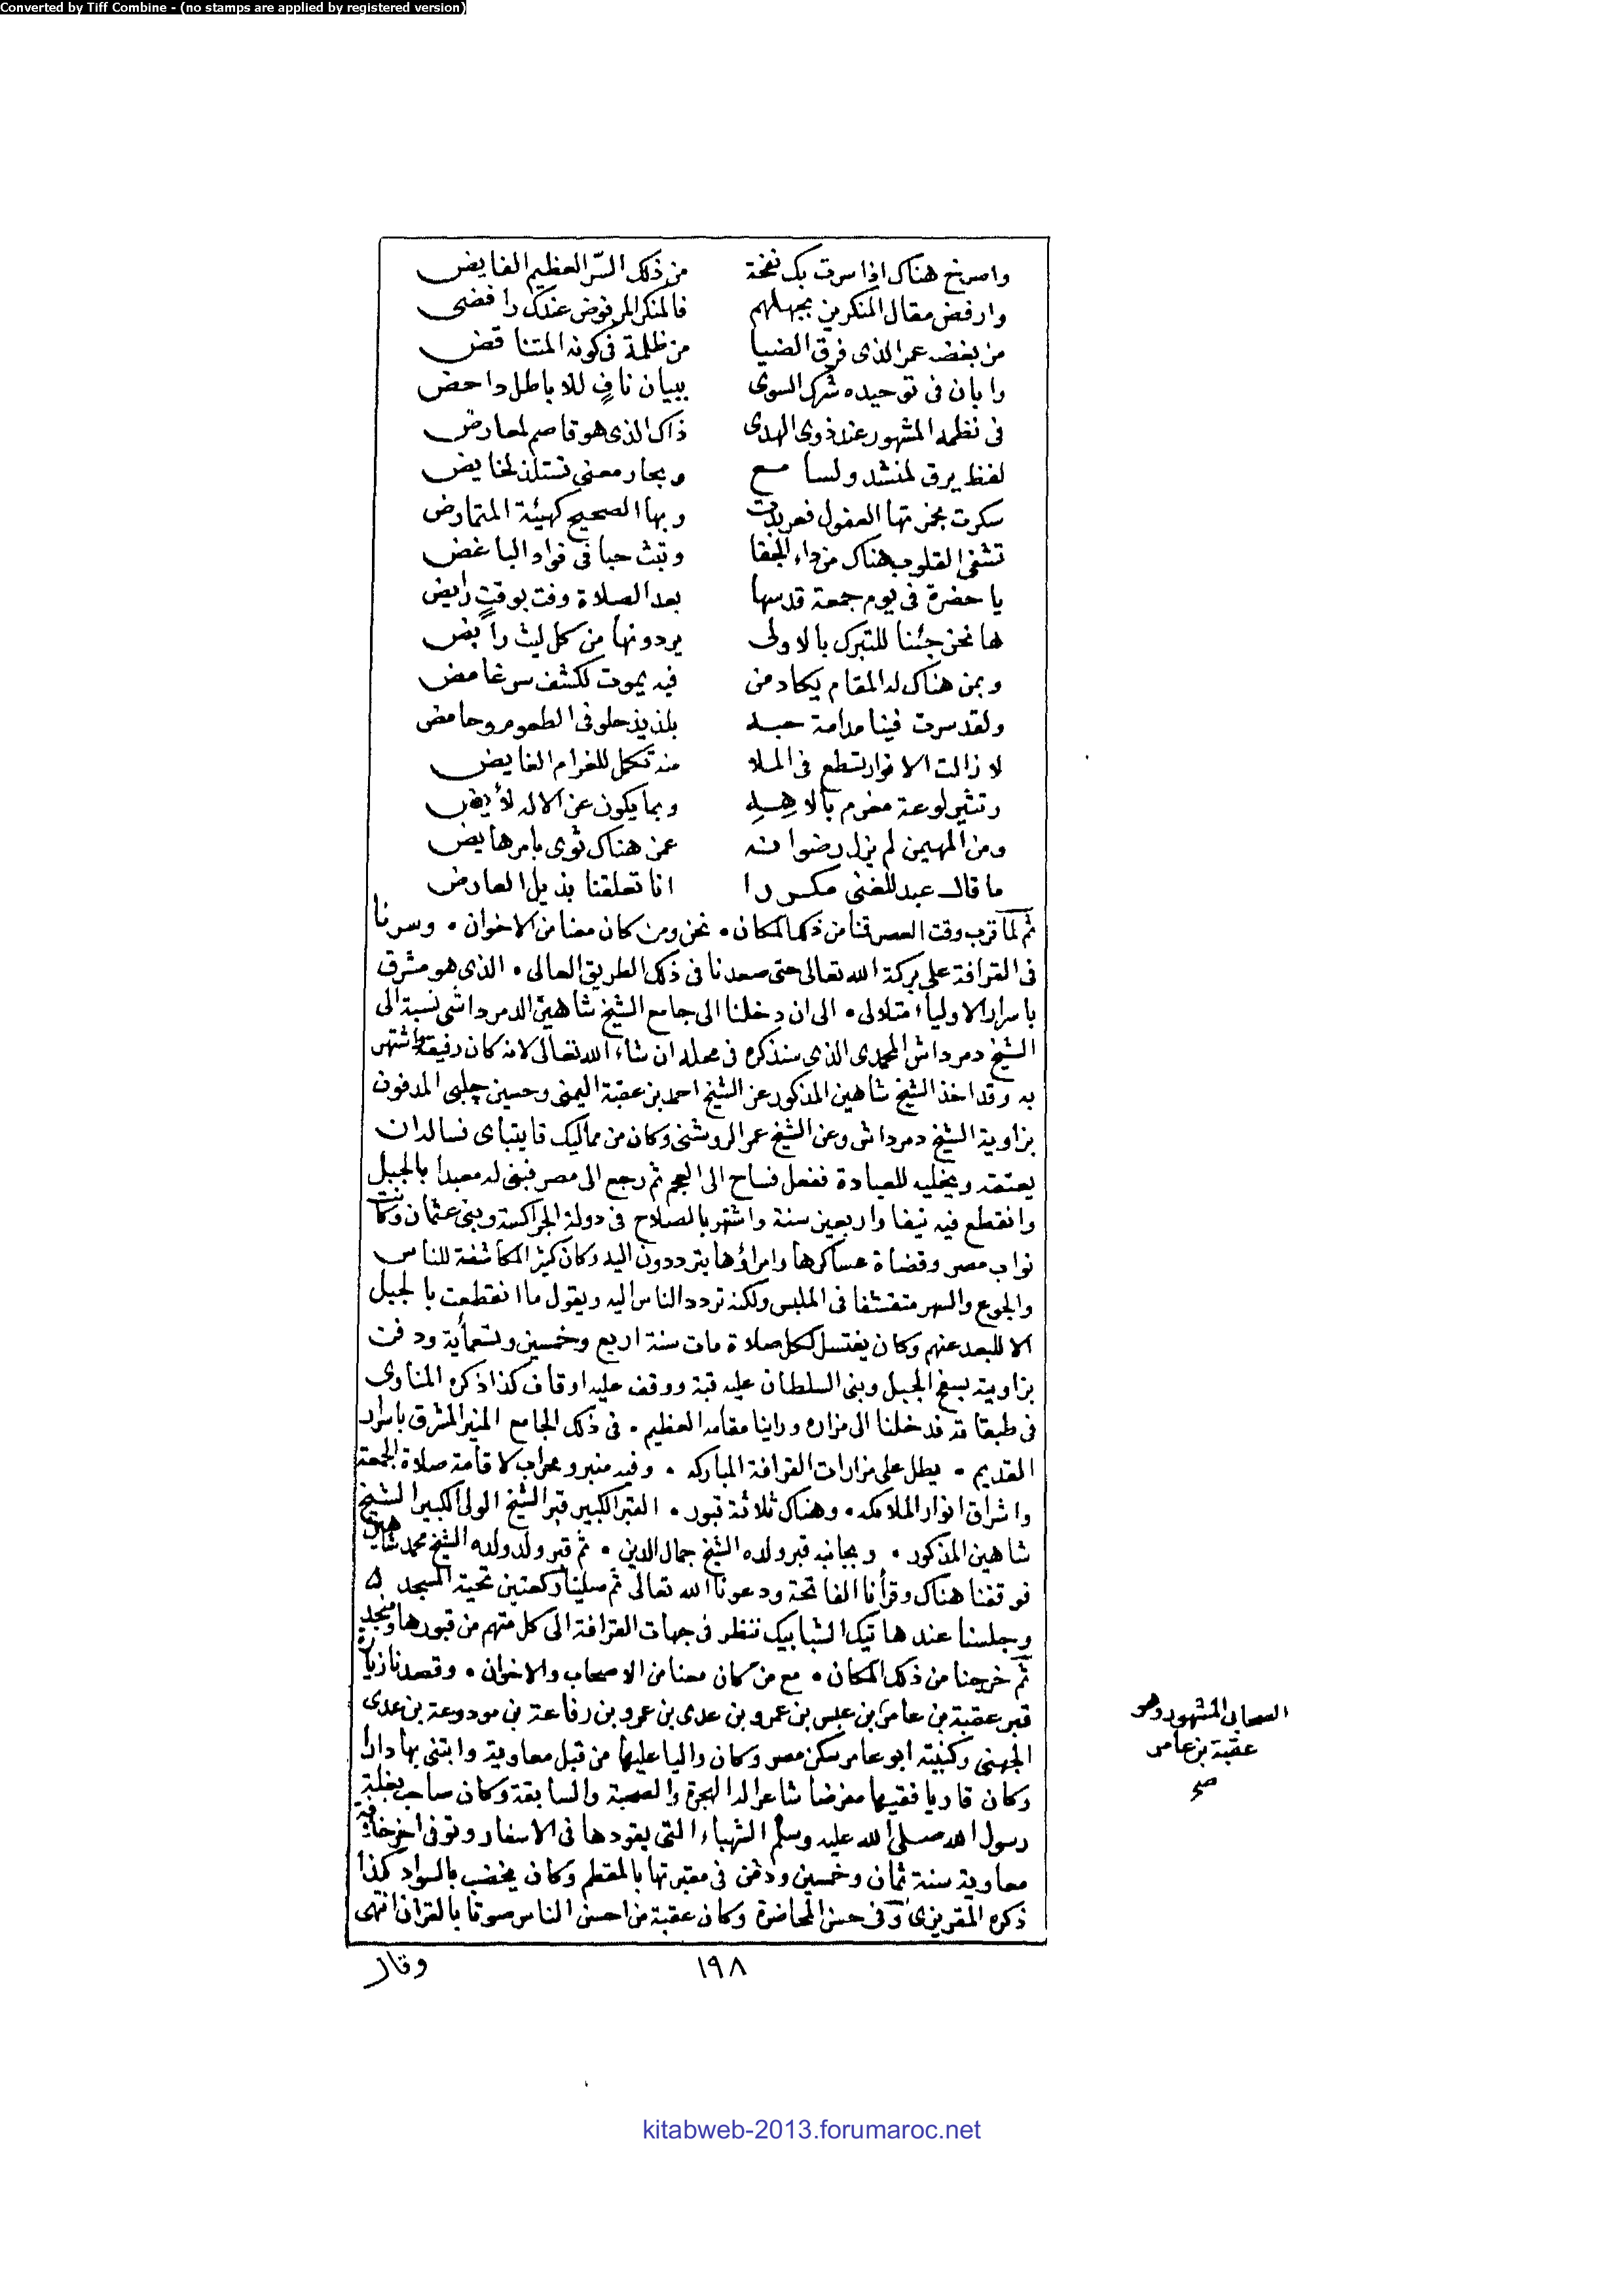 Converted by Tiff Combine - (no stamps are applied by registered version)
واصرخ هناك اذا سرت بك نفخة من ذلك السّر العظيم الفايض
وارفض مقال المنكرين بجهلهم فالمنكر المرفوض عندك رافضى
من بغضه عمر الذى فرق الضيا من ظلمة فى كونه المتناقض
وابان فى توحيده شرك السوى ببيان نافٍ للاباطل داحض
فى نظمه المشهور عند ذوى الهدى ذاك الذى هو قاصم لمعارض
لفظ يرق لمنشد ولسامع وبحار معنى تستلذ لخايض
سكرت بخمرتها العقول فعربدت وبها الصحيح كهيئة المتمارض
تشفى القلوب هناك من داء الجفا وتبث حبا فى فواد الباغض
يا حضرة فى يوم جمعة قدسها بعد الصلاة وفت بوقتٍ رايض
ها نحن جئنا للتبرك بالاولى يردونها من كل ليث رابض
وبمن هناك له المقام يكاد من فيه يموت لكشف سر غامض
ولقد سرت فينا مدامة حبه بلذيذ حلو فى الطعوم وحامض
لا زالت الانوار تسطع فى الملا منه تكمل للغرام الغايض
وتثير لوعة مغرم بالاهِلِهِ وبما يكون عن الاله لأيض
ومن المهيمن لم يزل رضوانه عمن هناك ثوى بامر هايض
ما قال عبد الغنى مكررا انا تعلقنا بذيل العارض
ثم لما قرب وقت العصر قمنا من ذلك المكان • نحن ومن كان معنا من الاخوان • وسرنا
فى القرافة على بركة الله تعالى حتى صعدنا فى ذلك الطريق العالى • الذى هو مشرق
باسرار الاولياء متلالى • الى ان دخلنا الى جامع الشيخ شاهين الدمرداشى نسبة الى
الشيخ دمرداش المحمدى الذى سنذكره فى محله ان شاء الله تعالى لانه كان رفيقه واشتهر
به وقد اخذ الشيخ شاهين المذكور عن الشيخ احمد بن عقبة اليمنى وحسين چلبى المدفون
بزاوية الشيخ دمرداش وعن الشيخ عمر الروشنى وكان من مماليك قايتباى فساله ان
يعتقه ويخليه للعبادة ففعل فساح الى العجم ثم رجع الى مصر فبنى له معبدا بالجبل
وانقطع فيه نيفا واربعين سنة واشتهر بالصلاح فى دولة الجراكسة وبنى عثمان وكانت
نواب مصر وقضاة عساكرها وامراؤها يترددون اليه وكان كثير المكاشفة للناس
والجوع والسهر متقشفا فى الملبس ولكنه تردد الناس اليه ويقول ما انقطعت بالجبل
الا للبعد عنهم وكان يغتسل لكل صلاة مات سنة اربع وخمسين وتسعمأية ودفن
بزاويته بسفح الجبل وبنى السلطان عليه قبة ووقف عليه اوقاف كذا ذكره المناوى
فى طبقاته فدخلنا الى مزاره وراينا مقامه العظيم • فى ذلك الجامع المنير المشرق باسرار
القديم • يطل على مزارات القرافة المباركه • وفيه منبر ومحراب لاقامة صلاة الجمعة
واشراق انوار الملائكه • وهناك ثلاثة قبور • القبر الكبير قبر الشيخ الولى الكبير الشيخ
شاهين المذكور • وبجانبه قبر ولده الشيخ جمال الدين • ثم قبر ولد ولده الشيخ محمد شاهين
فوقفنا هناك وقرأنا الفاتحة ودعونا الله تعالى ثم صلينا ركعتين تحية المسجد
وجلسنا عند هاتيك الشبابيك ننظر فى جهات القرافة الى كل متهم من قبورها ومنجد
ثم خرجنا من ذلك المكان • مع من كان معنا من الاصحاب والاخوان • وقصدنا زيارة
قبر عقبة بن عامر بن عبس بن عمرو بن عدى بن عمرو بن رفاعة بن مودوعة بن عدى
الجهنى وكنيته ابو عامر سكن مصر وكان واليا عليها من قبل معاوية وابتنى بها دارا
وكان قاريا فقيها مفرضا شاعرا له الهجرة والصحبة والسابقة وكان صاحب بغلة
رسول الله صلى الله عليه وسلم الشهباء التى يقودها فى الاسفار وتوفى اخر خلافة
معاوية سنة ثمان وخمسين ودفن فى مقبرتها بالمقطم وكان يخضب بالسواد كذا
ذكره المقريزى وفى حسن المحاضرة وكان عقبة من احسن الناس صوتا بالقران انتهى
الصحابى المشهور وهو
عقبة بن عامر
صح
١٩٨
وقال
kitabweb-2013.forumaroc.net